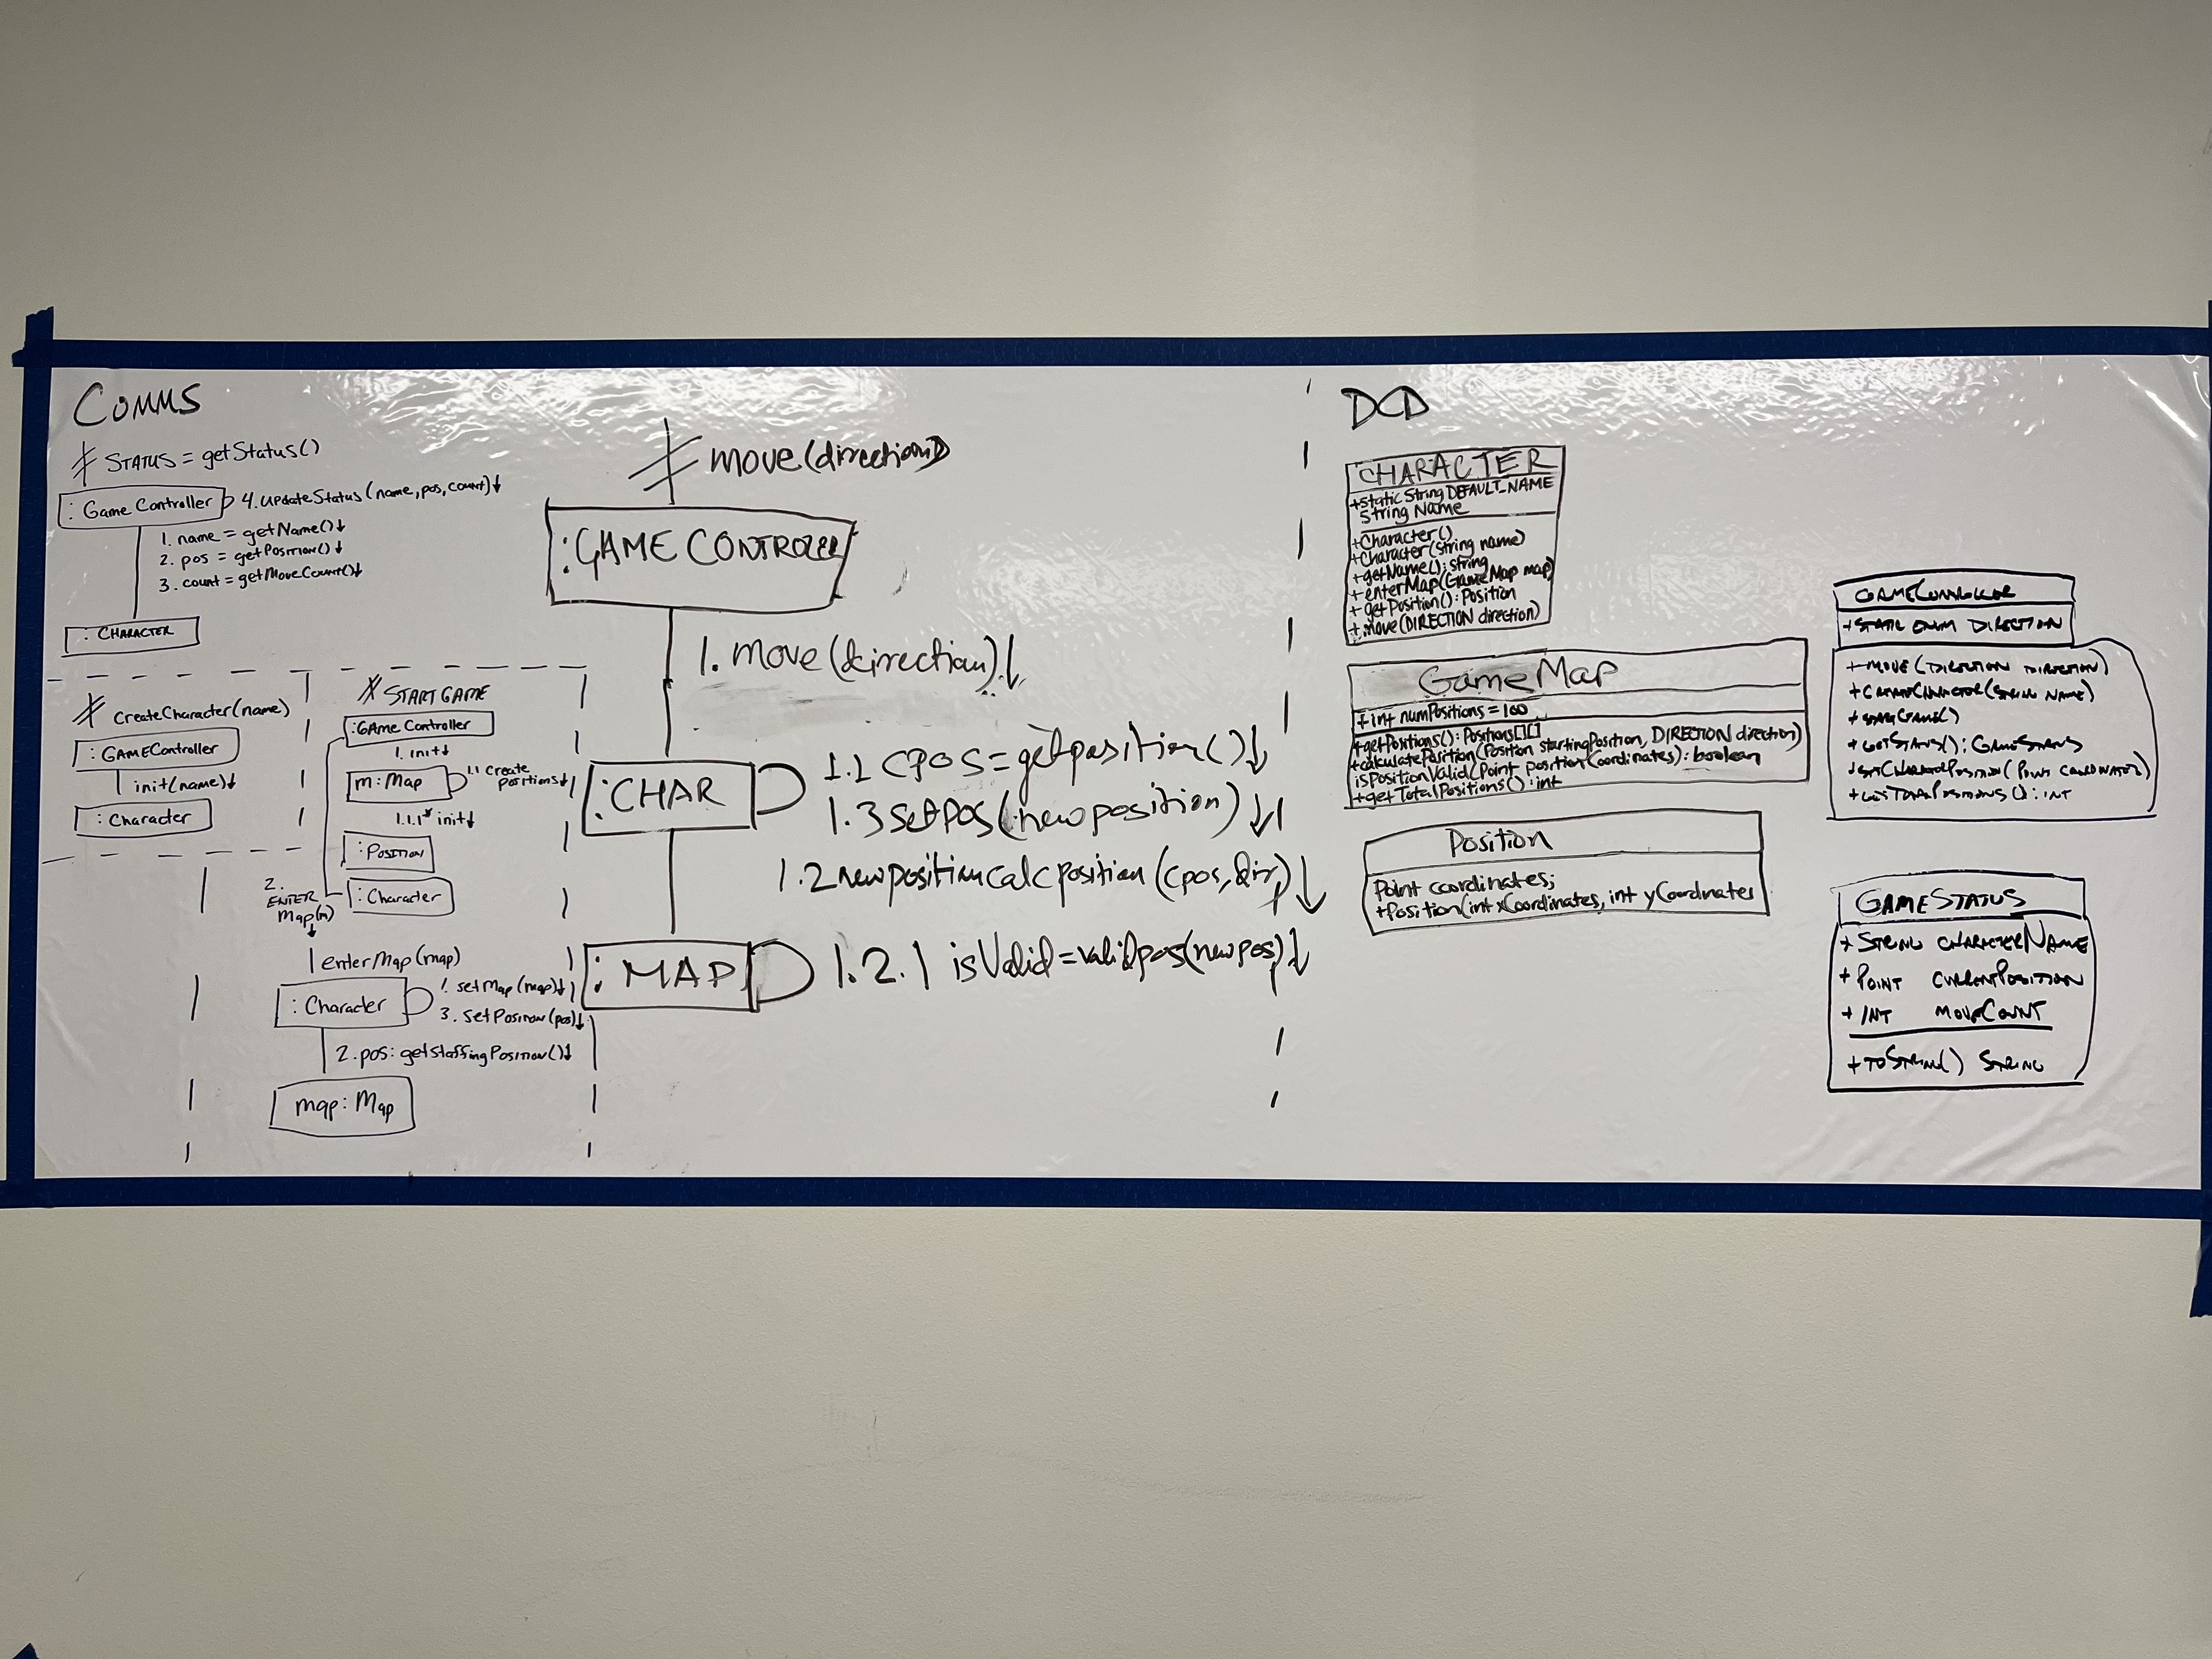 COMMS
STATUS = getStatus()
: Game Controller
4. UpdateStatus(name, pos, count)↓
1. name = getName()↓
2. pos = getPosition()↓
3. count = getMoveCount()↓
: CHARACTER
createCharacter(name)
: GAMEController
init(name)↓
: Character
START GAME
: GAme Controller
1. init↓
m: Map
1.1 create
positions↓
1.1.1* init↓
: POSITION
2.
ENTER
Map(m)
↓
: Character
enterMap(map)
: Character
1. setMap(map)↓
3. SetPosition(pos)↓
2. pos: getstaffingPosition()↓
map: Map
move(direction)
: GAME CONTROLLER
1. move(direction)↓
: CHAR
1.1 CPOS = getposition()↓
1.3 setPos(newposition)↓
1.2 newposition calcposition(cpos, dir,)↓
: MAP
1.2.1 isValid = validpos(newpos)↓
DCD
CHARACTER
+static String DEFAULT_NAME
String Name
+Character()
+Character(String name)
+getName(): string
+enterMap(GameMap map)
+getPosition(): Position
+move(DIRECTION direction)
Game Map
+int numPositions = 100
+getPositions(): Positions[][]
+calculatePosition(Position startingPosition, DIRECTION direction)
isPositionValid(Point positionCoordinates): boolean
+getTotalPositions(): int
Position
Point coordinates;
+Position(int xCoordinates, int yCoordinates
GAMECONTROLLER
+STATIC ENUM DIRECTION
+MOVE(DIRECTION DIRECTION)
+CREATECHARACTER(STRING NAME)
+STARTGAME()
+GETSTATUS(): GAMESTATUS
+SETCHARACTERPOSITION(POINT COORDINATES)
+GETTOTALPOSITIONS(): INT
GAMESTATUS
+ STRING CHARACTERNAME
+ POINT CURRENTPOSITION
+ INT MOVECOUNT
+ TOSTRING() STRING